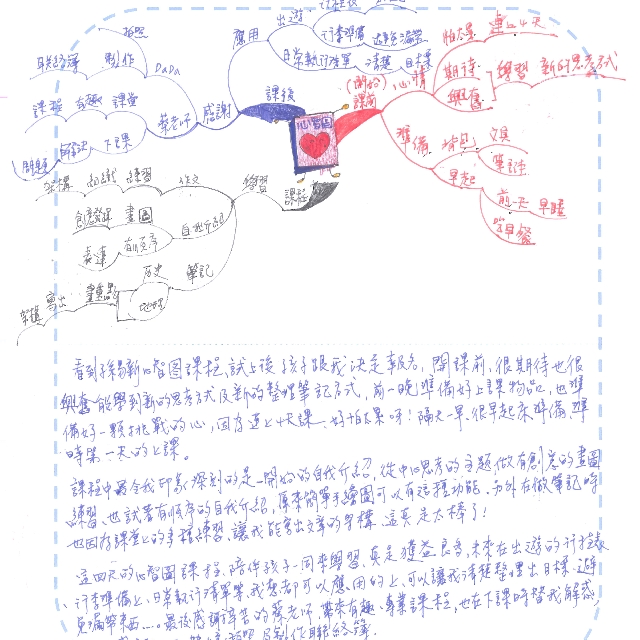 拍照
聯絡簿 製作 DaDa
課程 有趣 課堂
問題 解決 下課 蔡老師 感謝
課後
應用 出遊
行李準備
日常執行清單 清楚 目標
心智圖
(開始) 課前 心情
怕太累 連上4天
期待
興奮 學習 新的思考方式
準備 背包 文具
筆記
早起 前一天 早睡
吃早餐
課程 學習 作文
架構 練習
自我介紹 創意發揮 畫圖
表達 有順序
筆記 歷史
架構 寫出 畫重點
看到孫易新心智圖課程,試上後孩子跟我決定報名,開課前,很期待也很
興奮能學到新的思考方式及新的整理筆記方式,前一晚準備好上課物品,也準
備好一顆挑戰的心,因為連上4天課,好怕太累呀!隔天一早,很早起床準備,準
時第一天的上課。
課程中最令我印象深刻的是一開始的自我介紹,從中心思考的主題,做有創意的畫圖
練習,也試著有順序的自我介紹,原來簡單手繪圖可以有這種功能。另外在做筆記時
也因為課堂上的多種練習,讓我能寫出文章的架構,這真是太棒了!
這四天的心智圖課程,陪伴孩子一同來學習,真是獲益良多,未來在出遊的行程表
、行李準備上、日常執行清單等,我想都可以應用的上,可以讓我清楚整理出目標,避
免漏帶東西....。最後感謝辛苦的蔡老師,帶來有趣、專業課程,也在下課時替我解惑,
製作聯絡簿.